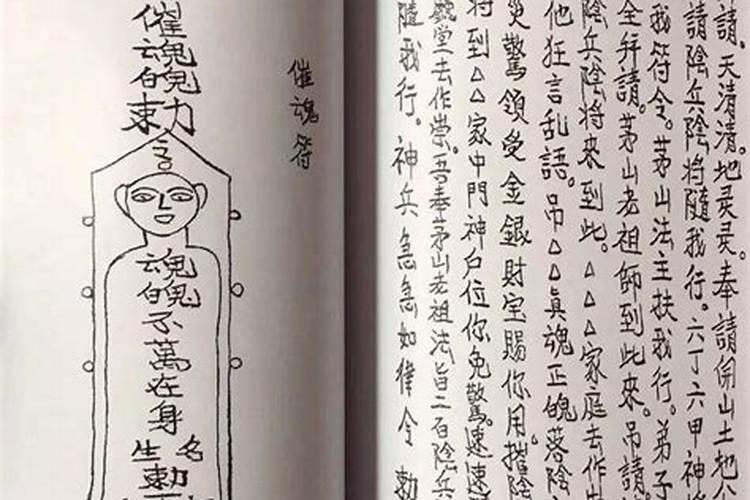 請。天清清。地灵灵。奉請開山土地
請陰兵陰將隨我行。六丁六甲神
我符令。茅山法主扶我行。弟子
全拜請。茅山老祖師到此來。吊請
陰兵陰將來到此。△△△家庭去作
他狂言乱語。吊△△真魂正魄落陰
災驚領受金銀財宝賜你用。摧陰
将到△△家中門神户位你免驚。速速
堂去作祟。吾奉茅山老祖法旨二百陰兵
隨我行。神兵急急如律令 勅
催魂符
催魂魄勅
魂魄不萬在身
名
生
勅